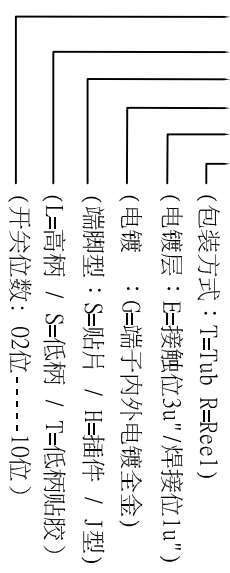 (包装方式：T=Tub R=Reel)
(电镀层：E=接触位3u"/焊接位1u")
(电镀 ：G=端子内外电镀全金)
(端脚型：S=贴片 / H=插件 / J型)
(L=高柄 / S=低柄 / T=低柄贴胶)
(开关位数：02位-----10位)